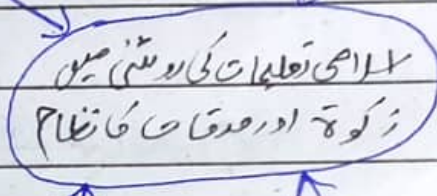 اسلامی تعلیمات کی روشنی میں
زکوٰۃ اور صدقات کا نظام